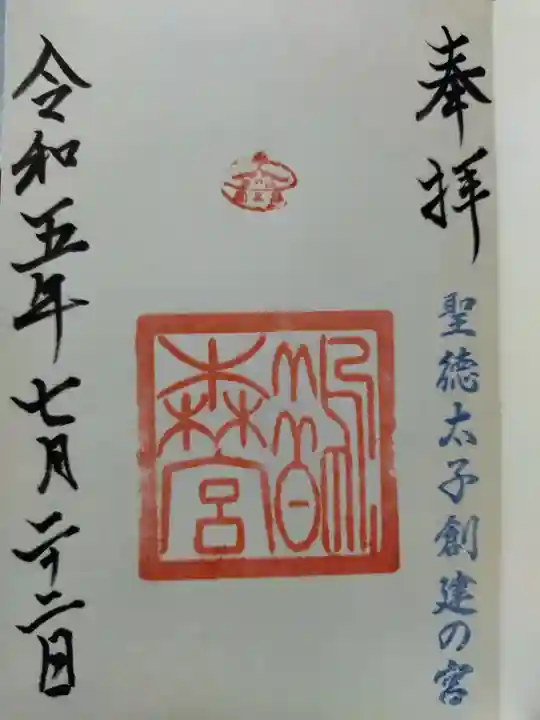 奉拝
聖徳太子創建の宮
鵲森宮
令和五年七月二十二日